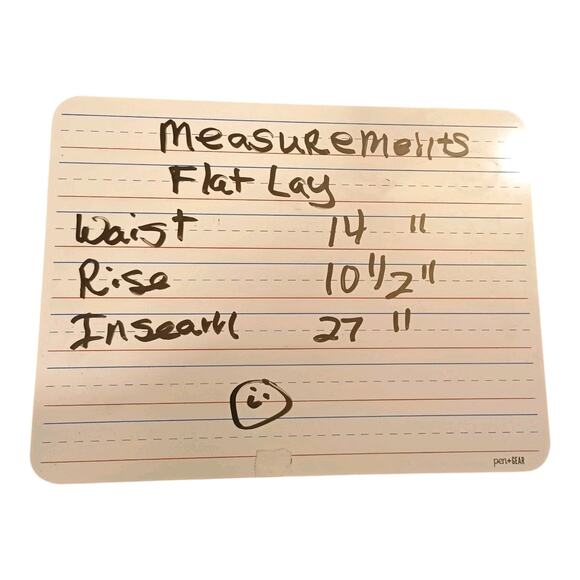 Measurements
Flat Lay
Waist 14 "
Rise 10 1/2 "
Inseam 27 "
pen+GEAR